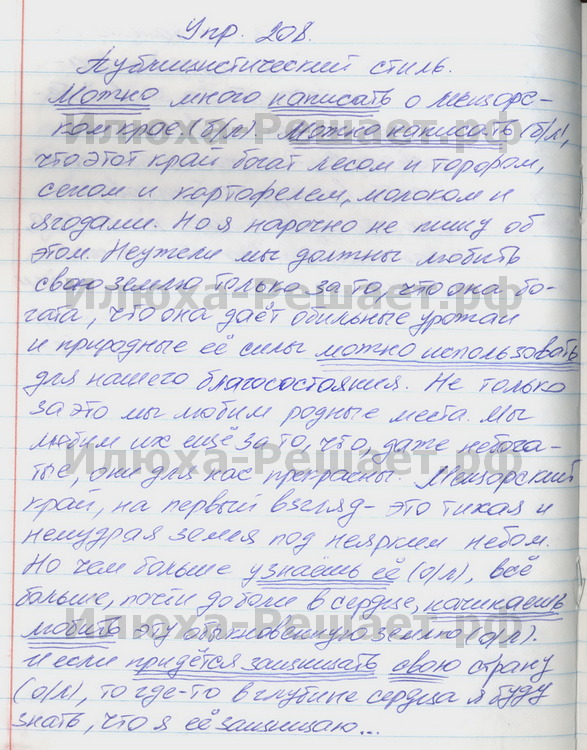 Упр. 208.
Публицистический стиль.
Можно много написать о Мещорс-
ком крае (б/л). Можно написать (б/л),
что этот край богат лесом и торфом,
сеном и картофелем, молоком и
ягодами. Но я нарочно не пишу об
этом. Неужели мы должны любить
свою землю только за то, что она бо-
гата, что она даёт обильные урожаи
и природные её силы можно использовать
для нашего благосостояния. Не только
за это мы любим родные места. Мы
любим их ещё за то, что, даже небога-
тые, они для нас прекрасны. Мещорский
край, на первый взгляд - это тихая и
немудрая земля под неярким небом.
Но чем больше узнаёшь её (о/л), всё
больше, почти до боли в сердце, начинаешь
любить эту обыкновенную землю (о/л).
И если придётся защищать свою страну
(о/л), то где-то в глубине сердца я буду
знать, что я её защищаю...
Илюха-Решает.рф
Илюха-Решает.рф
Илюха-Решает.рф
Илюха-Решает.рф